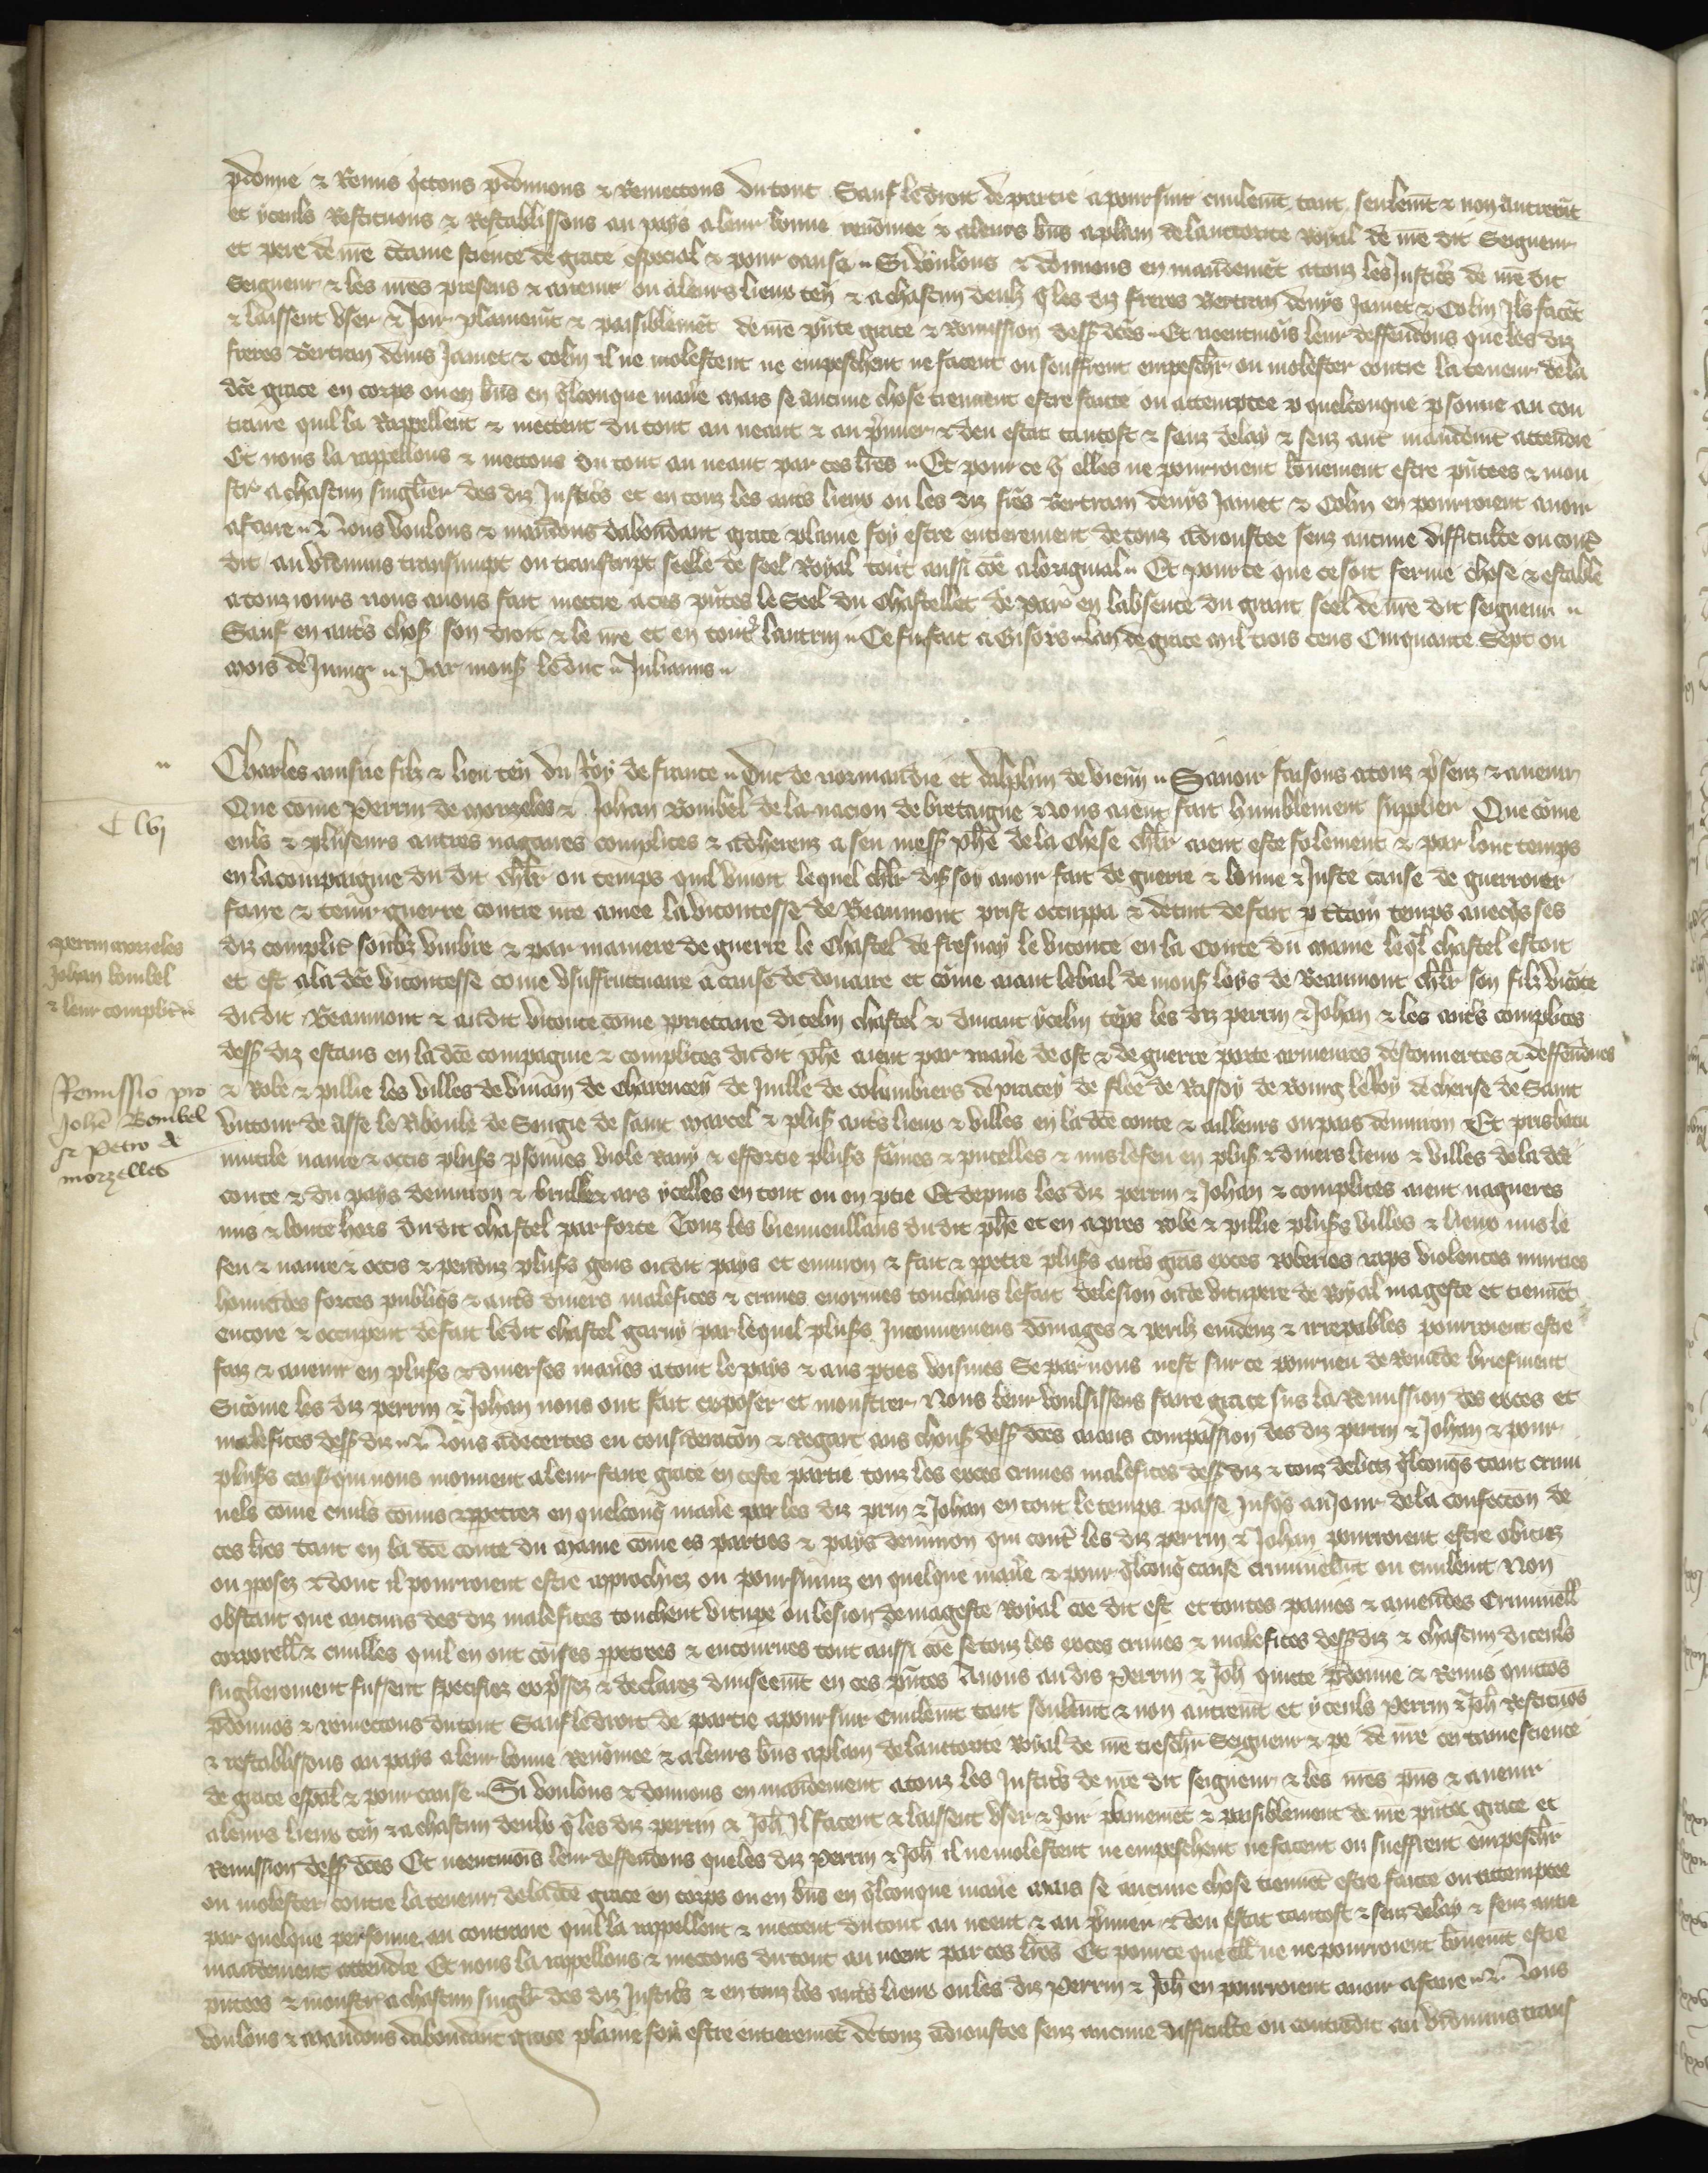 pdonne & Remis qittons pdonnons & Remettons du tout Sauf le droit de partie a poursuir civilemt tant seulemt & non autremt
et yceuls Restituons & Restablissons au pays a leur bonne renomee & a leurs bns a plain de lauttorite royal de nre dit Seigneur
et pere de nre ctaine science de grace especial & pour cause Si voulons & donnons en mandemet a touz les Justicrs de nre dit
Seigneur & les nres presens & avenir ou a leurs lieux ten & a chascun deulz q les diz freres Bertran denys Jamet & Colin Ils facet
& laissent user & Joir plainemt & paisiblemet de nre pnte grace & Remission dess dces Et neentmois leur deffendons que les diz
freres Bertran denis Jamet & Colin il ne molestent ne empeschent ne facent ou seuffrent empeschr ou molester contre la teneur de la
dce grace en corps ou en bns en qlconque maniere mais se aucune chose tiennent estre faicte ou attemptee p quelconque psonne au con
traire quil la Rappellent & mettent du tout au neant & au pmier & deu estat tantost & senz delay & senz autre mandemt attendre
Et nous la rappellons & mettons du tout au neant par ces lres Et pour ce q elles ne pourroient bonement estre pntees & mon
str a chascun singlier des diz Justicrs et en touz les autrs lieux ou les diz frers Bertram denys Jamet & Colin en pourroient avoir
afaire Nous voulons & mandons dabondant grace plaine foy estre entierement de touz adioustee senz aucune difficulte ou contr
dit au vidimus transumpt ou transcript seelle de seel Royal tout aussi coe a loriginal Et pour ce que ce soit ferme chose & estable
a touz iours nous avons fait mettre a ces pntes le Seel du Chastellet de Par en labsence du grant seel de nre dit seigneur
Sauf en autrs chos son droit & le nre et en toutr lautrui Ce fu fait a Gisors lan de grace mil trois cens Cinquante Sept ou
mois de Juing Par mons le duc Julianus
Charles ainsne filz & lieu ten du Roy de france Duc de normandie et dalphin de vienn Savoir faisons a touz psenz & avenir
Que come Perrin de morzeles & Johan Bombel de la nacion de bretaigne Nous aient fait humblement supplier Que come
C lvj
euls & pluseurs autres nagaires complices & adherenz a feu mess phe de la Chese chlr aient este folement & par lonc temps
en la compaignie du dit chlr ou temps quil vivoit lequel chlr disoy avoir fait de guerre & bonne & Juste cause de guerroier
faire & tenir guerre contre nre amee la vicontesse de Beaumont prist occuppa & detint de fait p ctain temps avecqs ses
diz complic soubz umbre & par maniere de guerre le Chastel de fresnay le viconte en la Conte du maine leql chastel estoit
et est a la dce vicontesse come usuffructuaire a cause de douaire et come aiant le bail de mons loys de Beaumont chlr son filz vicote
du dit Beaumont & au dit viconte come prietaire dicelui chastel & durant ycelui teps les diz perrin & Johan & les autrs complices
dess diz estans en la dce compagnie & complices du dit phe aient par manie de ost & de guerre porte armeures descouvertes & deffendues
& Robe & pillie les villes de vivain de charencey de Juille de columbiers de pracey de flee de Rassoy de Bourg le Roy de cherise de Saint
victour de asse le Riboule de Sougie de saint marcel & plus autrs lieux & villes en la dce conte & ailleurs ou pais denviron Et pris batu
mutile navre & occis pluss psonnes viole ravy & efforcie pluss fames & pucelles & mis le feu en plus & divers lieux & villes de la dce
conte & du pays denviron & brulle & ars ycelles en tout ou en ptie Et depuis les diz perrin & Johan & complices aient nagueres
mis & boute hors du dit chastel par force Touz les bienveullans du dit phe et en apres robe & pillie pluss villes & lieux mis le
feu & navre & occis & penduz pluss gens ou dit pays et environ & fait & ppetre pluss autrs grans exces roberies raps violences murtres
homicides forces publiqs & autrs divers malefices & crimes enormes touchans le fait de lesion ou de vitupere de Royal mageste et tienent
encore & occupent de fait le dit chastel garny par lequel pluss Inconveniens domages & perilz evidenz & irrepables pourroient estre
faiz & avenir en pluss & diverses manies a tout le pays & aus pties voisines Se par nous nest sur ce pourveu de Remede briefment
Sicome les diz perrin & Johan nous ont fait exposer et monstrer Nous leur voulsissens faire grace sus la Remission des exces et
malefices dess diz Nous adecertes en consideracon & Regart aus chous dess dces aians compassion des diz perrin & Johan & pour
pluss caus qui nous mouvent a leur faire grace en ceste partie touz les exces crimes malefices dess diz & touz debtz qlconqs tant crimi
nels come civils comis & ppetrez en quelconq manie par les diz prin & Johan en tout le temps passe Jusqs au Jour de la confection de
ces lres tant en la dce conte du maine come es parties & pays denviron qui contr les diz perrin & Johan pourroient estre obiciez
ou pposez & dont il pourroient estre approchiez ou poursuiuz en quelque manie & pour qlconq cause criminelmt ou civilemt Non
obstant que aucuns des diz malefices touchent vitupe ou lesion de mageste Royal coe dit est et toutes paines & amendes Criminell
corporell & civilles quil en ont comses ppetrees & encourues tout aussi coe se touz les exces crimes & malefices dess diz & chascun diceuls
singlierement fussent specifiez expssez & declarez diviseemt en ces pntes Avons au dis Perrin & Joh quicte pdonne & Remis quittos
pdonnos & remettons du tout Sauf le droit de partie a poursuir Civilemt tant seulemt & non autremt et yceuls Perrin & Joh Restituos
& restablissons au pays a leur bonne Renomee & a leurs bns a plain de lauttorite Royal de nre treschr Seigneur & pe de nre certaine science
de grace espal & pour cause Si voulons & donnons en mandement a touz les Justicrs de nre dit seigneur & les nres pns & avenir
a leurs lieux ten & a chascun deulx q les diz perrin & Joh Il facent & laissent user & Joir plainemet & paisiblement de nre pnte grace et
Remission dess dces Et neentmois leur deffendons que les diz Perrin & Joh il ne molestent ne empeschent ne facent ou sueffrent empeschr
ou molester contre la teneur de la dce grace en corps ou en bns en qlconque manie mais se aucune chose tiennet estre faicte ou attemptee
par quelque personne au contraire quil la rappellent & mettent du tout au neent & au pmier & deu estat tantost & senz delay & senz autre
mandement attendre Et nous la rappellons & mettons du tout au neent par ces lres Et pour ce que ell ne pourroient bonemt estre
pntees & monstr a chascun singlr des diz Justicrs & en touz les autrs lieux ou les diz Perrin & Joh en pourroient avoir afaire Nous
voulons & mandons dabondant grace plaine foy estre entieremet de touz adioustee senz aucune difficulte ou contredit au vidimus trans
perrin morzeles
Johan bombel
& leur complic
Remissio pro
Johe Bombel
& Petro de
morzelles